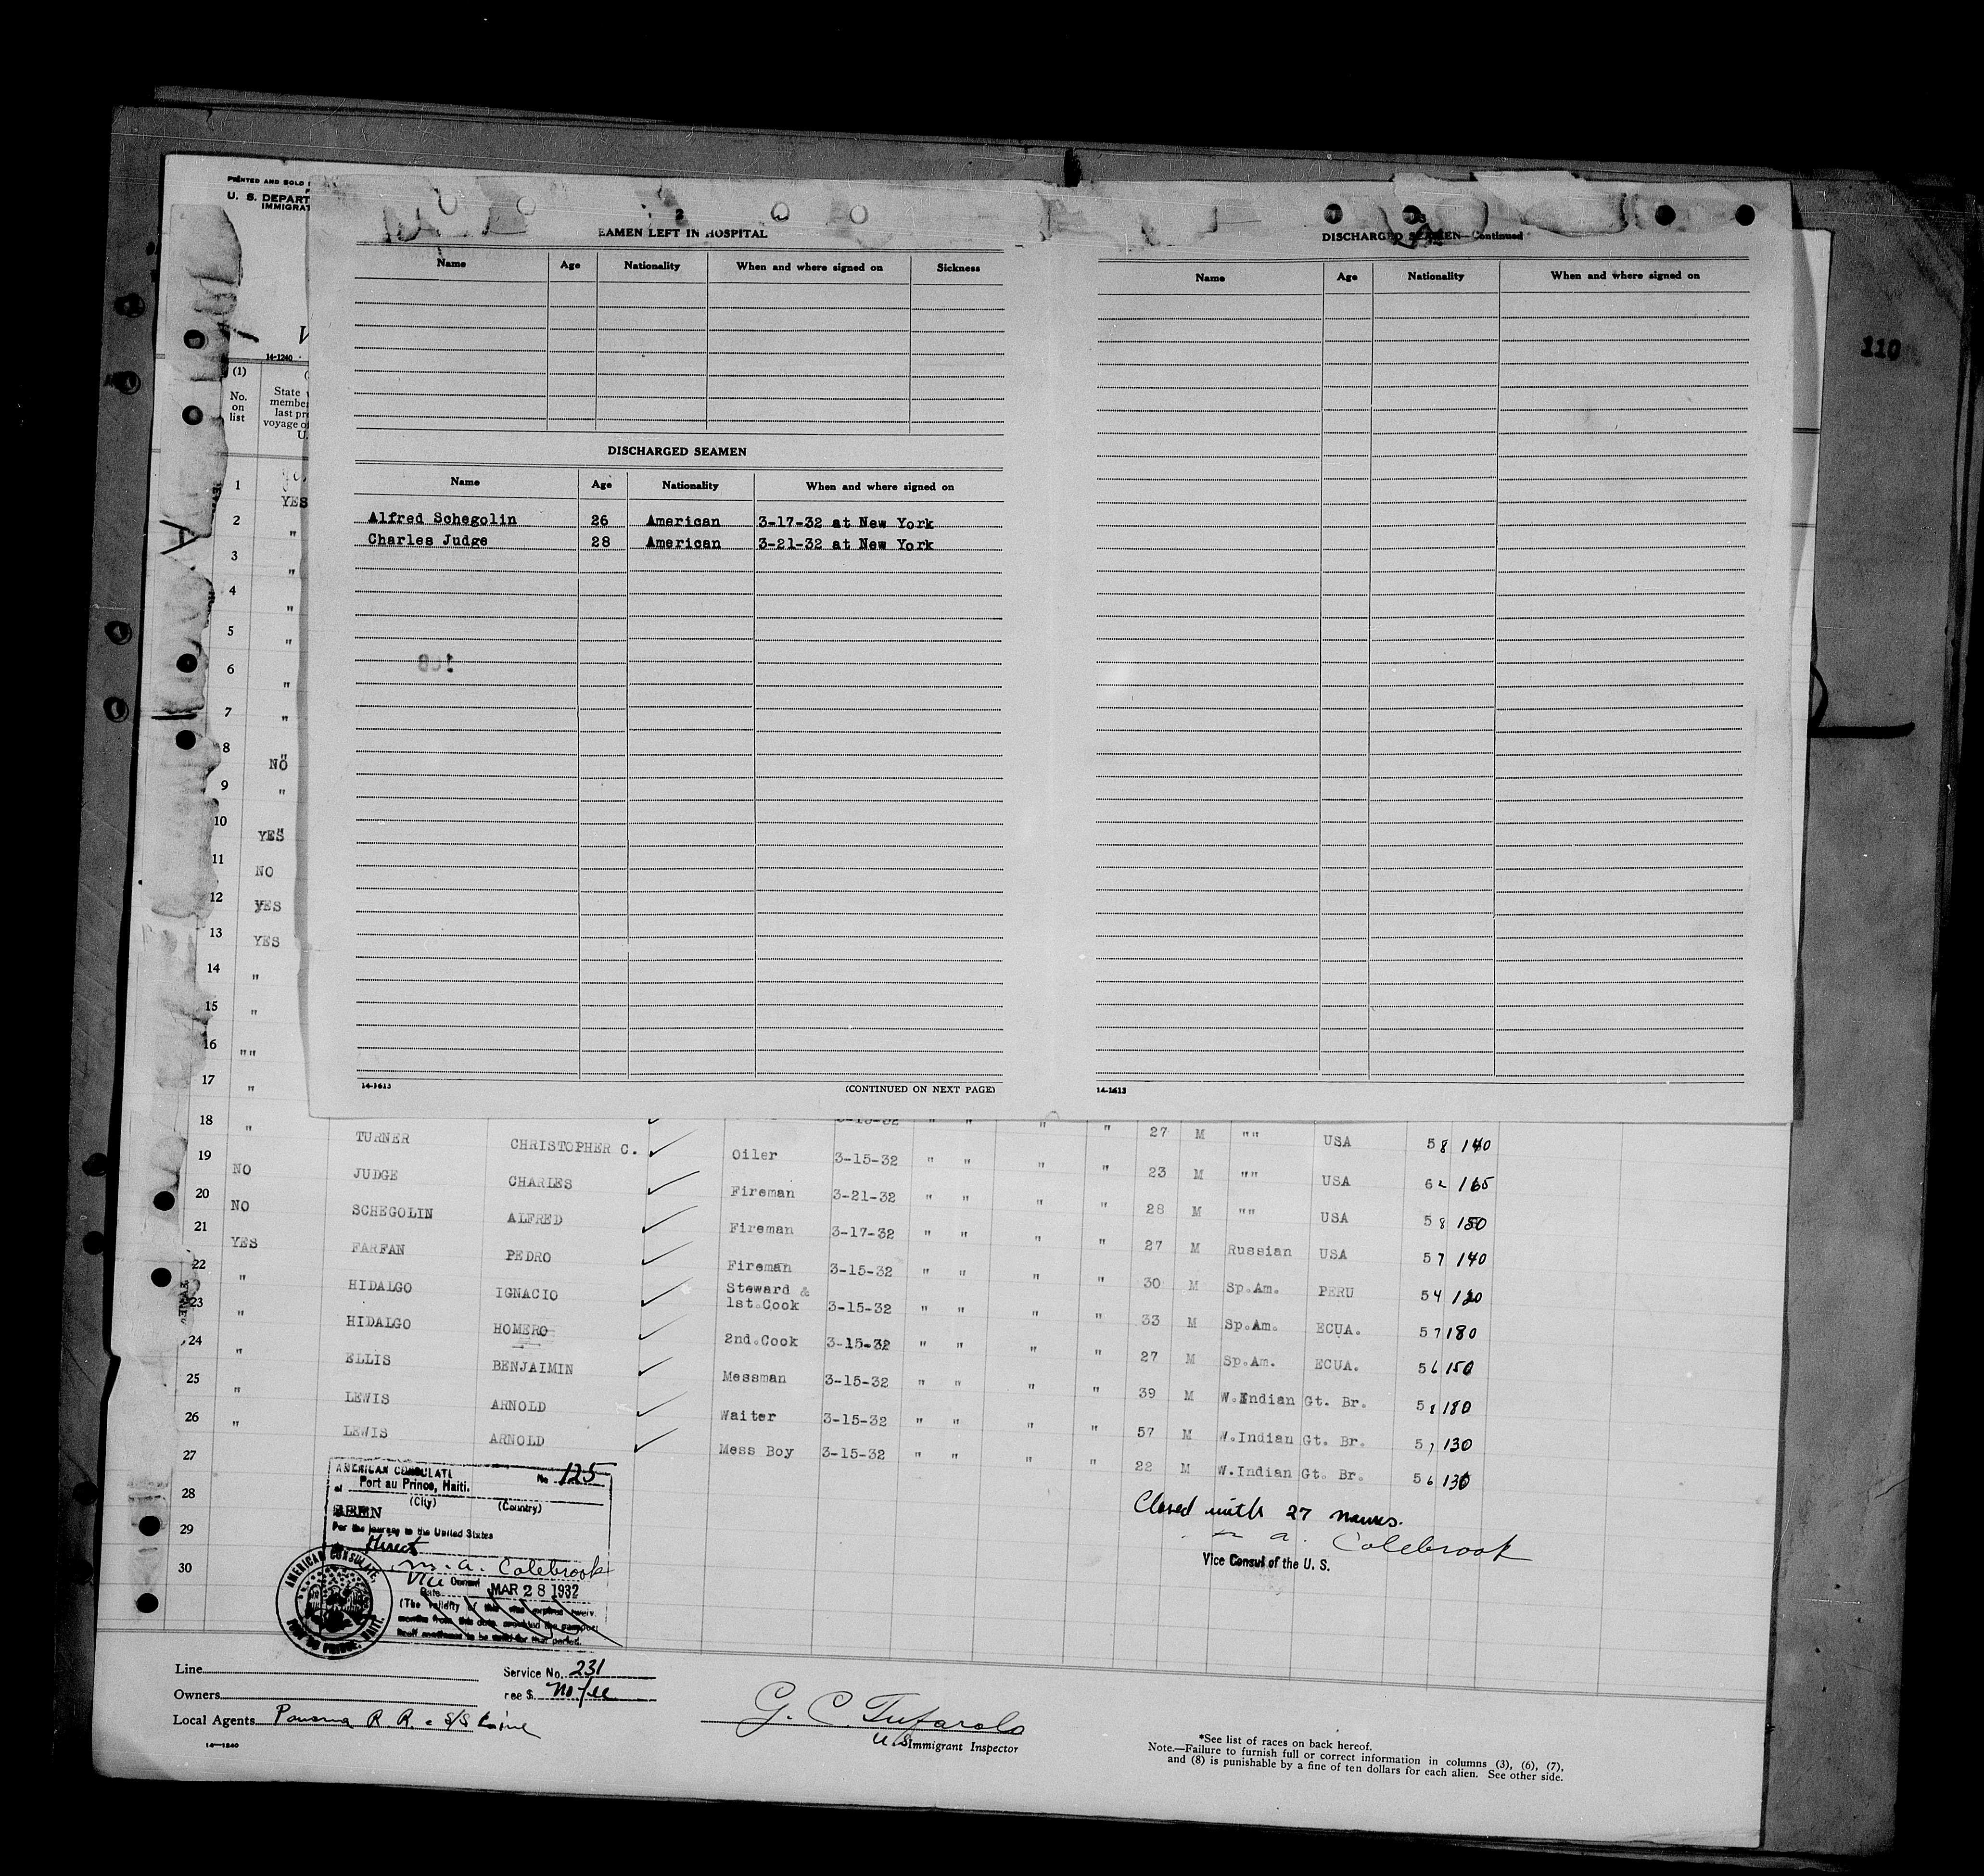 PRINTED AND SOLD
U. S. DEPART
IMMIGRAT
14-1240
(1)
No. on list
State
member
last pre
voyage of
U.
110
2
SEAMEN LEFT IN HOSPITAL
Name Age Nationality When and where signed on Sickness
DISCHARGED SEAMEN
Name Age Nationality When and where signed on
Alfred Schegolin 26 American 3-17-32 at New York
Charles Judge 28 American 3-21-32 at New York
14-1613 (CONTINUED ON NEXT PAGE)
3
DISCHARGED SEAMEN—Continued
Name Age Nationality When and where signed on
14-1613
1 YES
2 "
3 "
4 "
5 "
6 "
7 "
8 " NO
9 "
10 " YES
11 NO
12 YES
13 YES
14 "
15 "
16 " "
17 "
18 " TURNER CHRISTOPHER C. Oiler 3-15-32 " " " " 27 M " " USA 5 8 140
19 NO JUDGE CHARLES Fireman 3-21-32 " " " " 23 M " " USA 6 2 165
20 NO SCHEGOLIN ALFRED Fireman 3-17-32 " " " " 28 M " " USA 5 8 150
21 YES FARFAN PEDRO Fireman 3-15-32 " " " " 27 M Russian USA 5 7 140
22 " HIDALGO IGNACIO Steward & 1st.Cook 3-15-32 " " " " 30 M Sp.Am. PERU 5 4 120
23 " HIDALGO HOMERO 2nd.Cook 3-15-32 " " " " 33 M Sp.Am. ECUA. 5 7 180
24 " ELLIS BENJAIMIN Messman 3-15-32 " " " " 27 M Sp.Am. ECUA. 5 6 150
25 " LEWIS ARNOLD Waiter 3-15-32 " " " " 39 M W.Indian Gt. Br. 5 8 180
26 " LEWIS ARNOLD Mess Boy 3-15-32 " " " " 57 M W.Indian Gt. Br. 5 7 130
27 22 M W.Indian Gt. Br. 5 6 136
28
29
30
AMERICAN CONSULATE No 125
at Port au Prince, Haiti.
(City) (Country)
SEEN
For the journey to the United States
Direct
m. a. Colebrook
Vice Consul
Date MAR 28 1932
(The validity of this visa expires twelve
months from this date, provided the passport
itself continues to be valid for that period.
AMERICAN CONSULATE,
PORT AU PRINCE, HAITI.
Closed with 27 names.
m a. Colebrook
Vice Consul of the U. S.
Line
Owners
Local Agents Panama R. R. S/S Line
14-1240
Service No. 231
Fee $ No fee
G. C. Tufarolo
U.S. Immigrant Inspector
*See list of races on back hereof.
Note.—Failure to furnish full or correct information in columns (3), (6), (7),
and (8) is punishable by a fine of ten dollars for each alien. See other side.